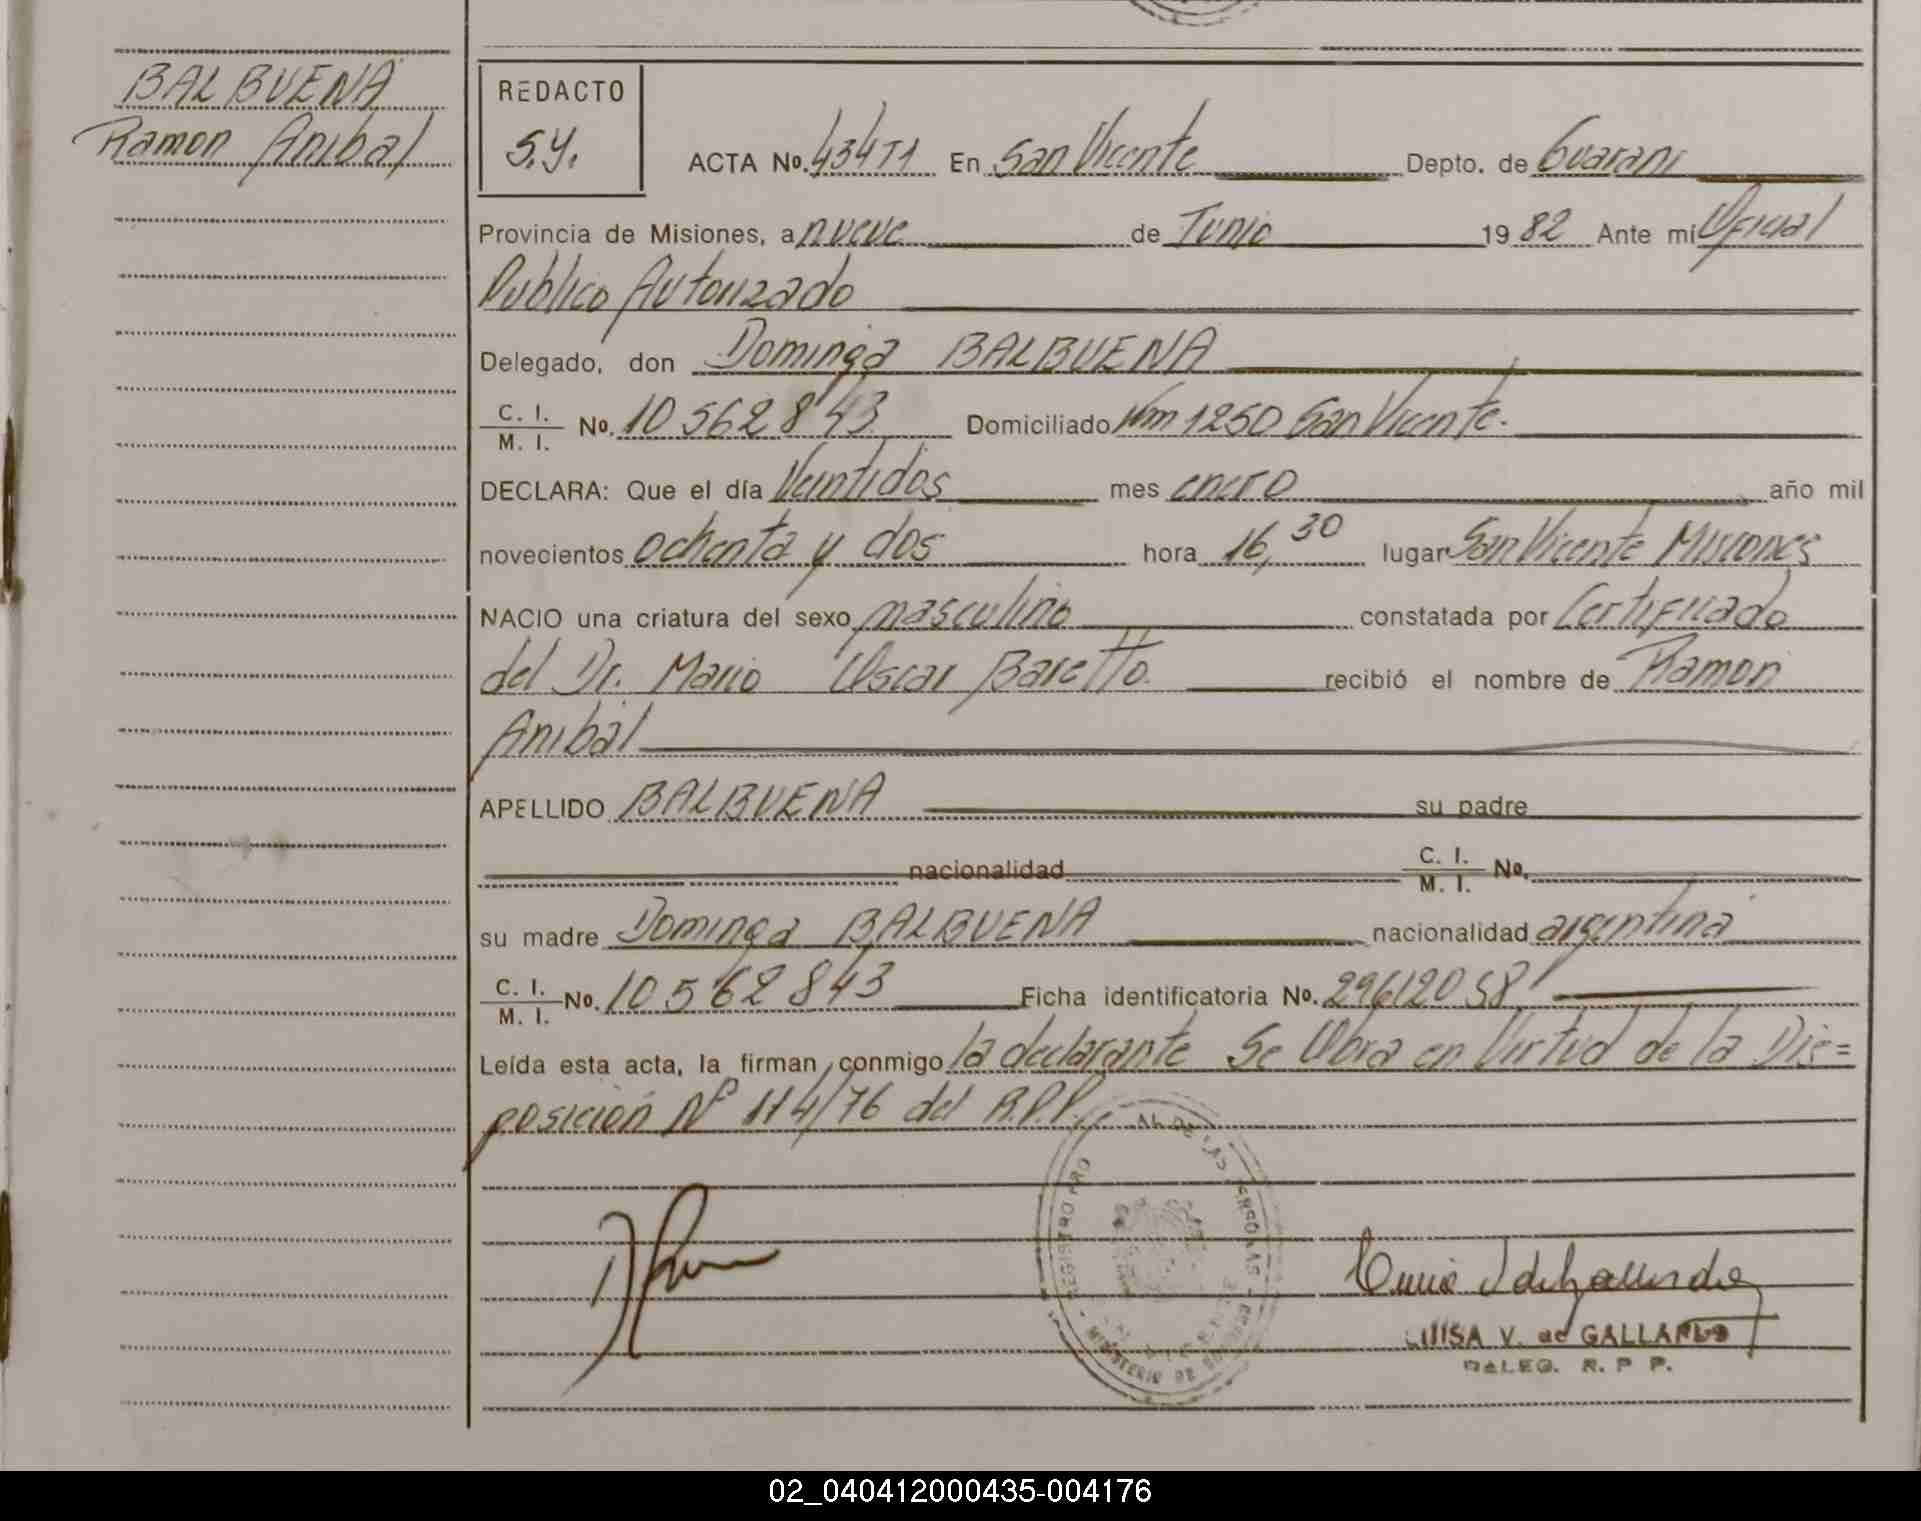 BALBUENA
Ramon Anibal
REDACTO
S.Y.
ACTA No. 434 T1 En San Vicente Depto. de Guarani
Provincia de Misiones, a nueve de Junio 19 82 Ante mi Oficial
Publico Autorizado
Delegado, don Dominga BALBUENA
C. I. / M. I. No. 10 562 843 Domiciliado Km 1250 San Vicente.
DECLARA: Que el día Veintidos mes enero año mil
novecientos ochenta y dos hora 16,30 lugar San Vicente Misiones
NACIO una criatura del sexo masculino constatada por Certificado
del Dr. Mario Oscar Baretto. recibió el nombre de Ramon
Anibal
APELLIDO BALBUENA su padre
nacionalidad C. I. / M. I. No.
su madre Dominga BALBUENA nacionalidad argentina
C. I. / M. I. No. 10 562 843 Ficha identificatoria No. 29612058
Leída esta acta, la firman conmigo la declarante Se Obra en Virtud de la Dis=
posición Nº 114/76 del R.P.P.
REGISTRO PRO AL DE LAS PERSONAS - MINISTERIO DE GOBIERNO
LUISA V. de GALLARDO
DELEG. R. P P.
02_040412000435-004176